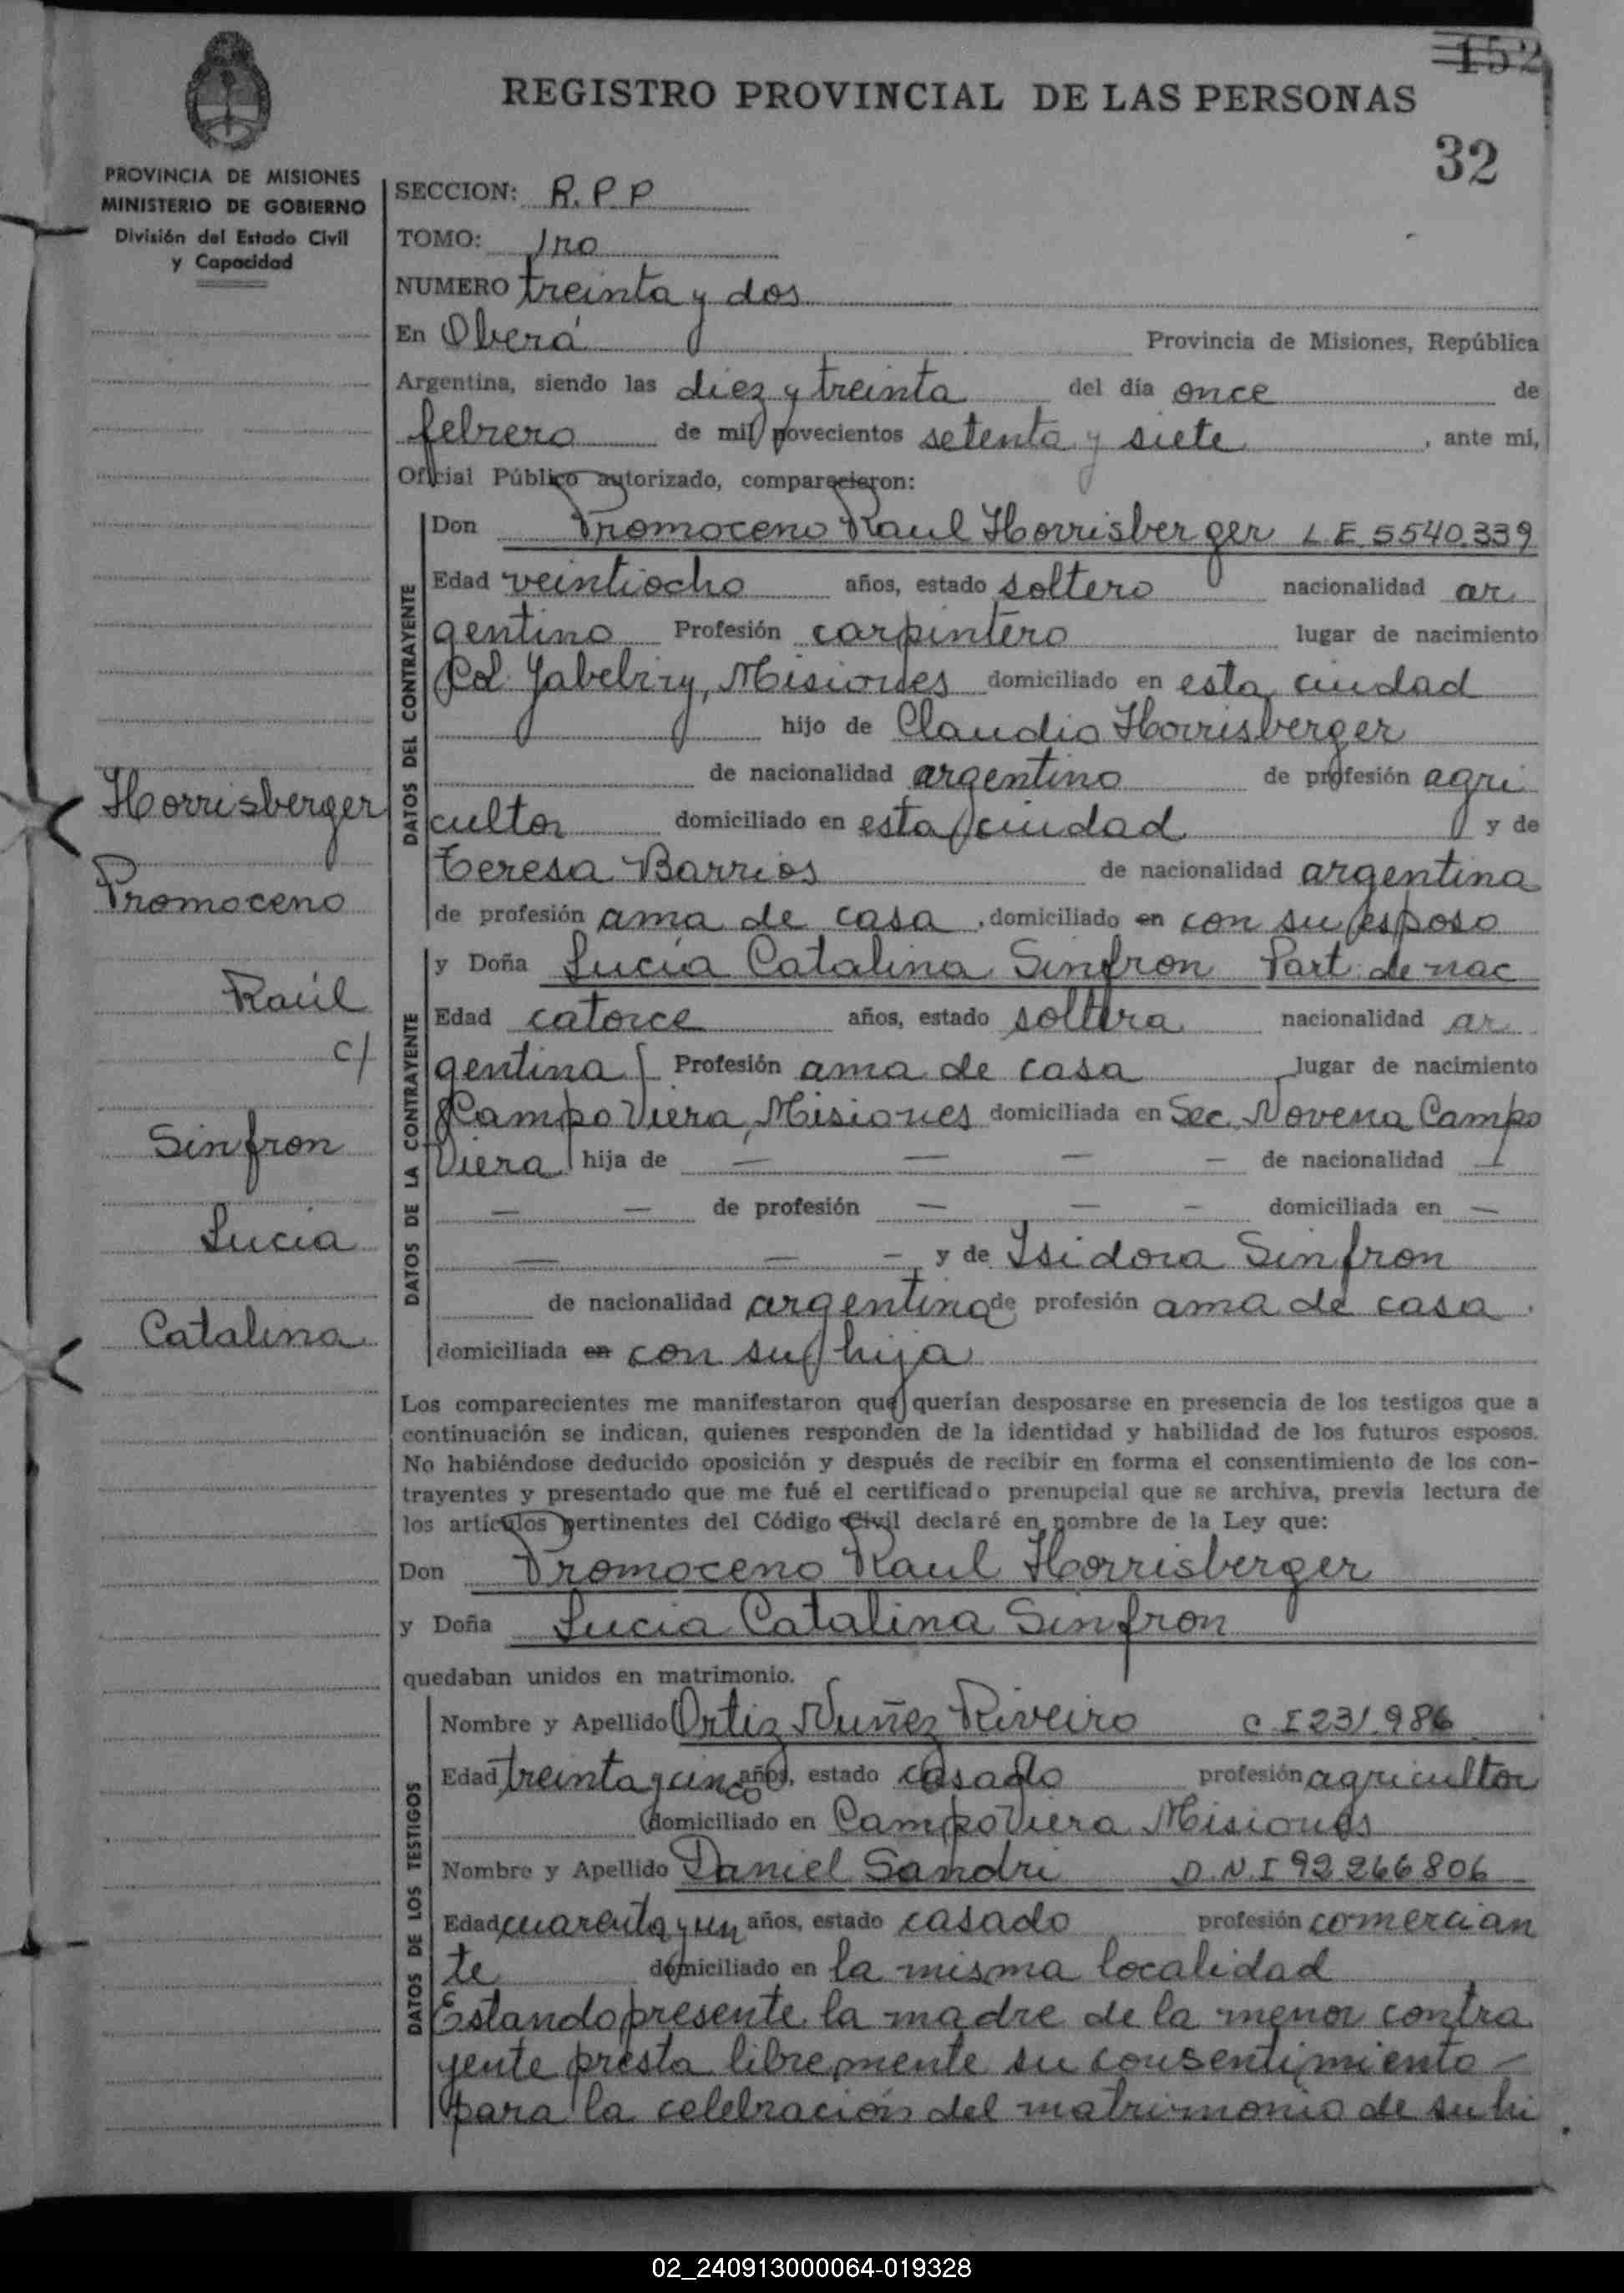 152
REGISTRO PROVINCIAL DE LAS PERSONAS
32
PROVINCIA DE MISIONES
MINISTERIO DE GOBIERNO
División del Estado Civil
y Capacidad
SECCION: R.P.P
TOMO: 1ro
NUMERO treinta y dos
En Oberá Provincia de Misiones, República
Argentina, siendo las diez y treinta del día once de
febrero de mil novecientos setenta y siete, ante mi,
Oficial Público autorizado, comparecieron:
DATOS DEL CONTRAYENTE
Don Promoceno Raul Horrisberger L.E. 5540.339
Edad veintiocho años, estado soltero nacionalidad ar
gentino Profesión carpintero lugar de nacimiento
Col. Yabebiry, Misiones domiciliado en esta ciudad
hijo de Claudio Horrisberger
de nacionalidad argentino de profesión agri
cultor domiciliado en esta ciudad y de
Teresa Barrios de nacionalidad argentina
de profesión ama de casa, domiciliado en con su esposo
DATOS DE LA CONTRAYENTE
y Doña Lucía Catalina Sinfron Part. de nac
Edad catorce años, estado soltera nacionalidad ar
gentina Profesión ama de casa lugar de nacimiento
Campo Viera, Misiones domiciliada en Sec. Novena Campo
Viera hija de — — — — de nacionalidad —
— — de profesión — — — domiciliada en —
— — — y de Isidora Sinfron
de nacionalidad argentina de profesión ama de casa.
domiciliada en con su hija
Horrisberger
Promoceno
Raúl
c/
Sinfron
Lucia
Catalina
Los comparecientes me manifestaron que querían desposarse en presencia de los testigos que a
continuación se indican, quienes responden de la identidad y habilidad de los futuros esposos.
No habiéndose deducido oposición y después de recibir en forma el consentimiento de los con-
trayentes y presentado que me fué el certificado prenupcial que se archiva, previa lectura de
los artículos pertinentes del Código Civil declaré en nombre de la Ley que:
Don Promoceno Raul Horrisberger
y Doña Lucia Catalina Sinfron
quedaban unidos en matrimonio.
DATOS DE LOS TESTIGOS
Nombre y Apellido Ortiz Nuñez Riveiro C I 231.986
Edad treinta y cinco años, estado casado profesión agricultor
domiciliado en Campo Viera Misiones
Nombre y Apellido Daniel Sandri D.N.I 92.266806
Edad cuarenta y un años, estado casado profesión comercian
te domiciliado en la misma localidad
Estando presente la madre de la menor contra
yente presta libremente su consentimiento —
para la celebración del matrimonio de su hi
02_240913000064-019328